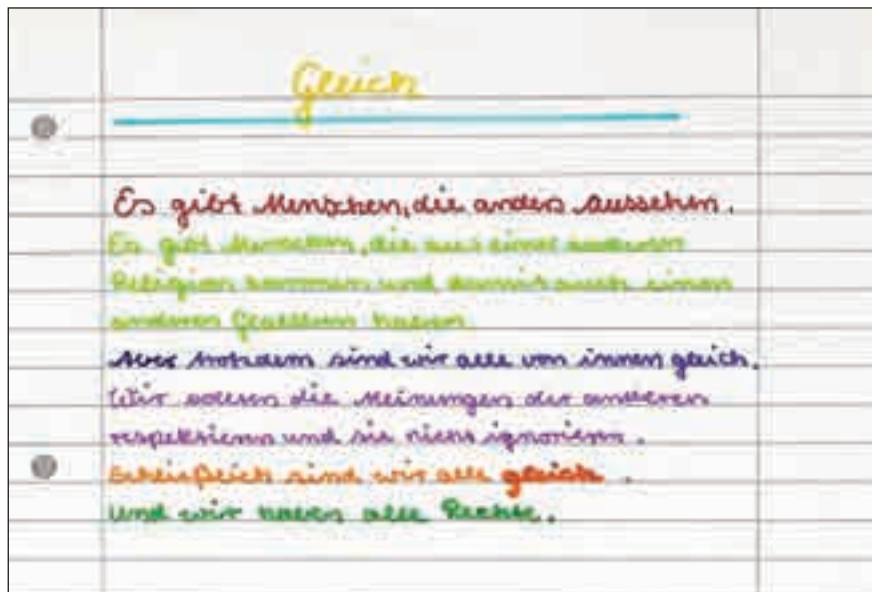 Gleich
Es gibt Menschen, die anders aussehen.
Es gibt Menschen, die aus einer anderen
Religion kommen und damit auch einen
anderen Glauben haben.
Aber trotzdem sind wir alle von innen gleich.
Wir sollten die Meinungen der anderen
respektieren und sie nicht ignorieren.
Schließlich sind wir alle gleich.
Und wir haben alle Rechte.